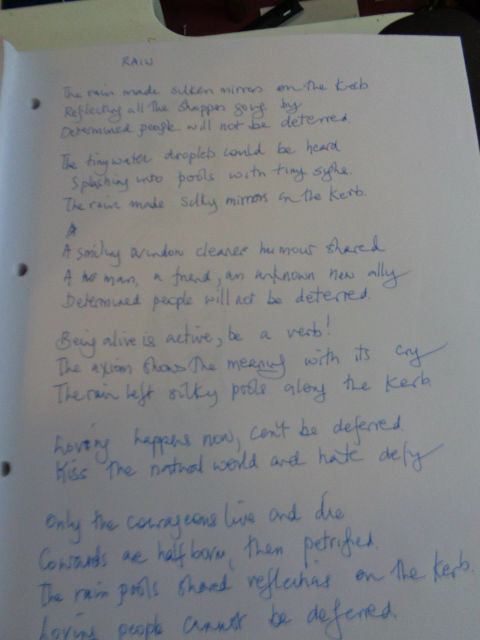 RAIN
The rain made silken mirrors on the kerb
Reflecting all the shoppers going by
Determined people will not be deterred.
The tiny water droplets could be heard
Splashing into pools with tiny sighs.
The rain made silky mirrors on the kerb.
A
A smiling window cleaner humour shared
A man, a friend, an unknown new ally
Determined people will not be deterred.
Being alive is active, be a verb!
The axiom shows the meaning with its cry
The rain left silky pools along the kerb
Loving happens now, can't be deferred
Kiss the natural world and hate defy
Only the courageous live and die
Cowards are half born, then petrified.
The rain pools shared reflections on the kerb.
Loving people cannot be deferred.